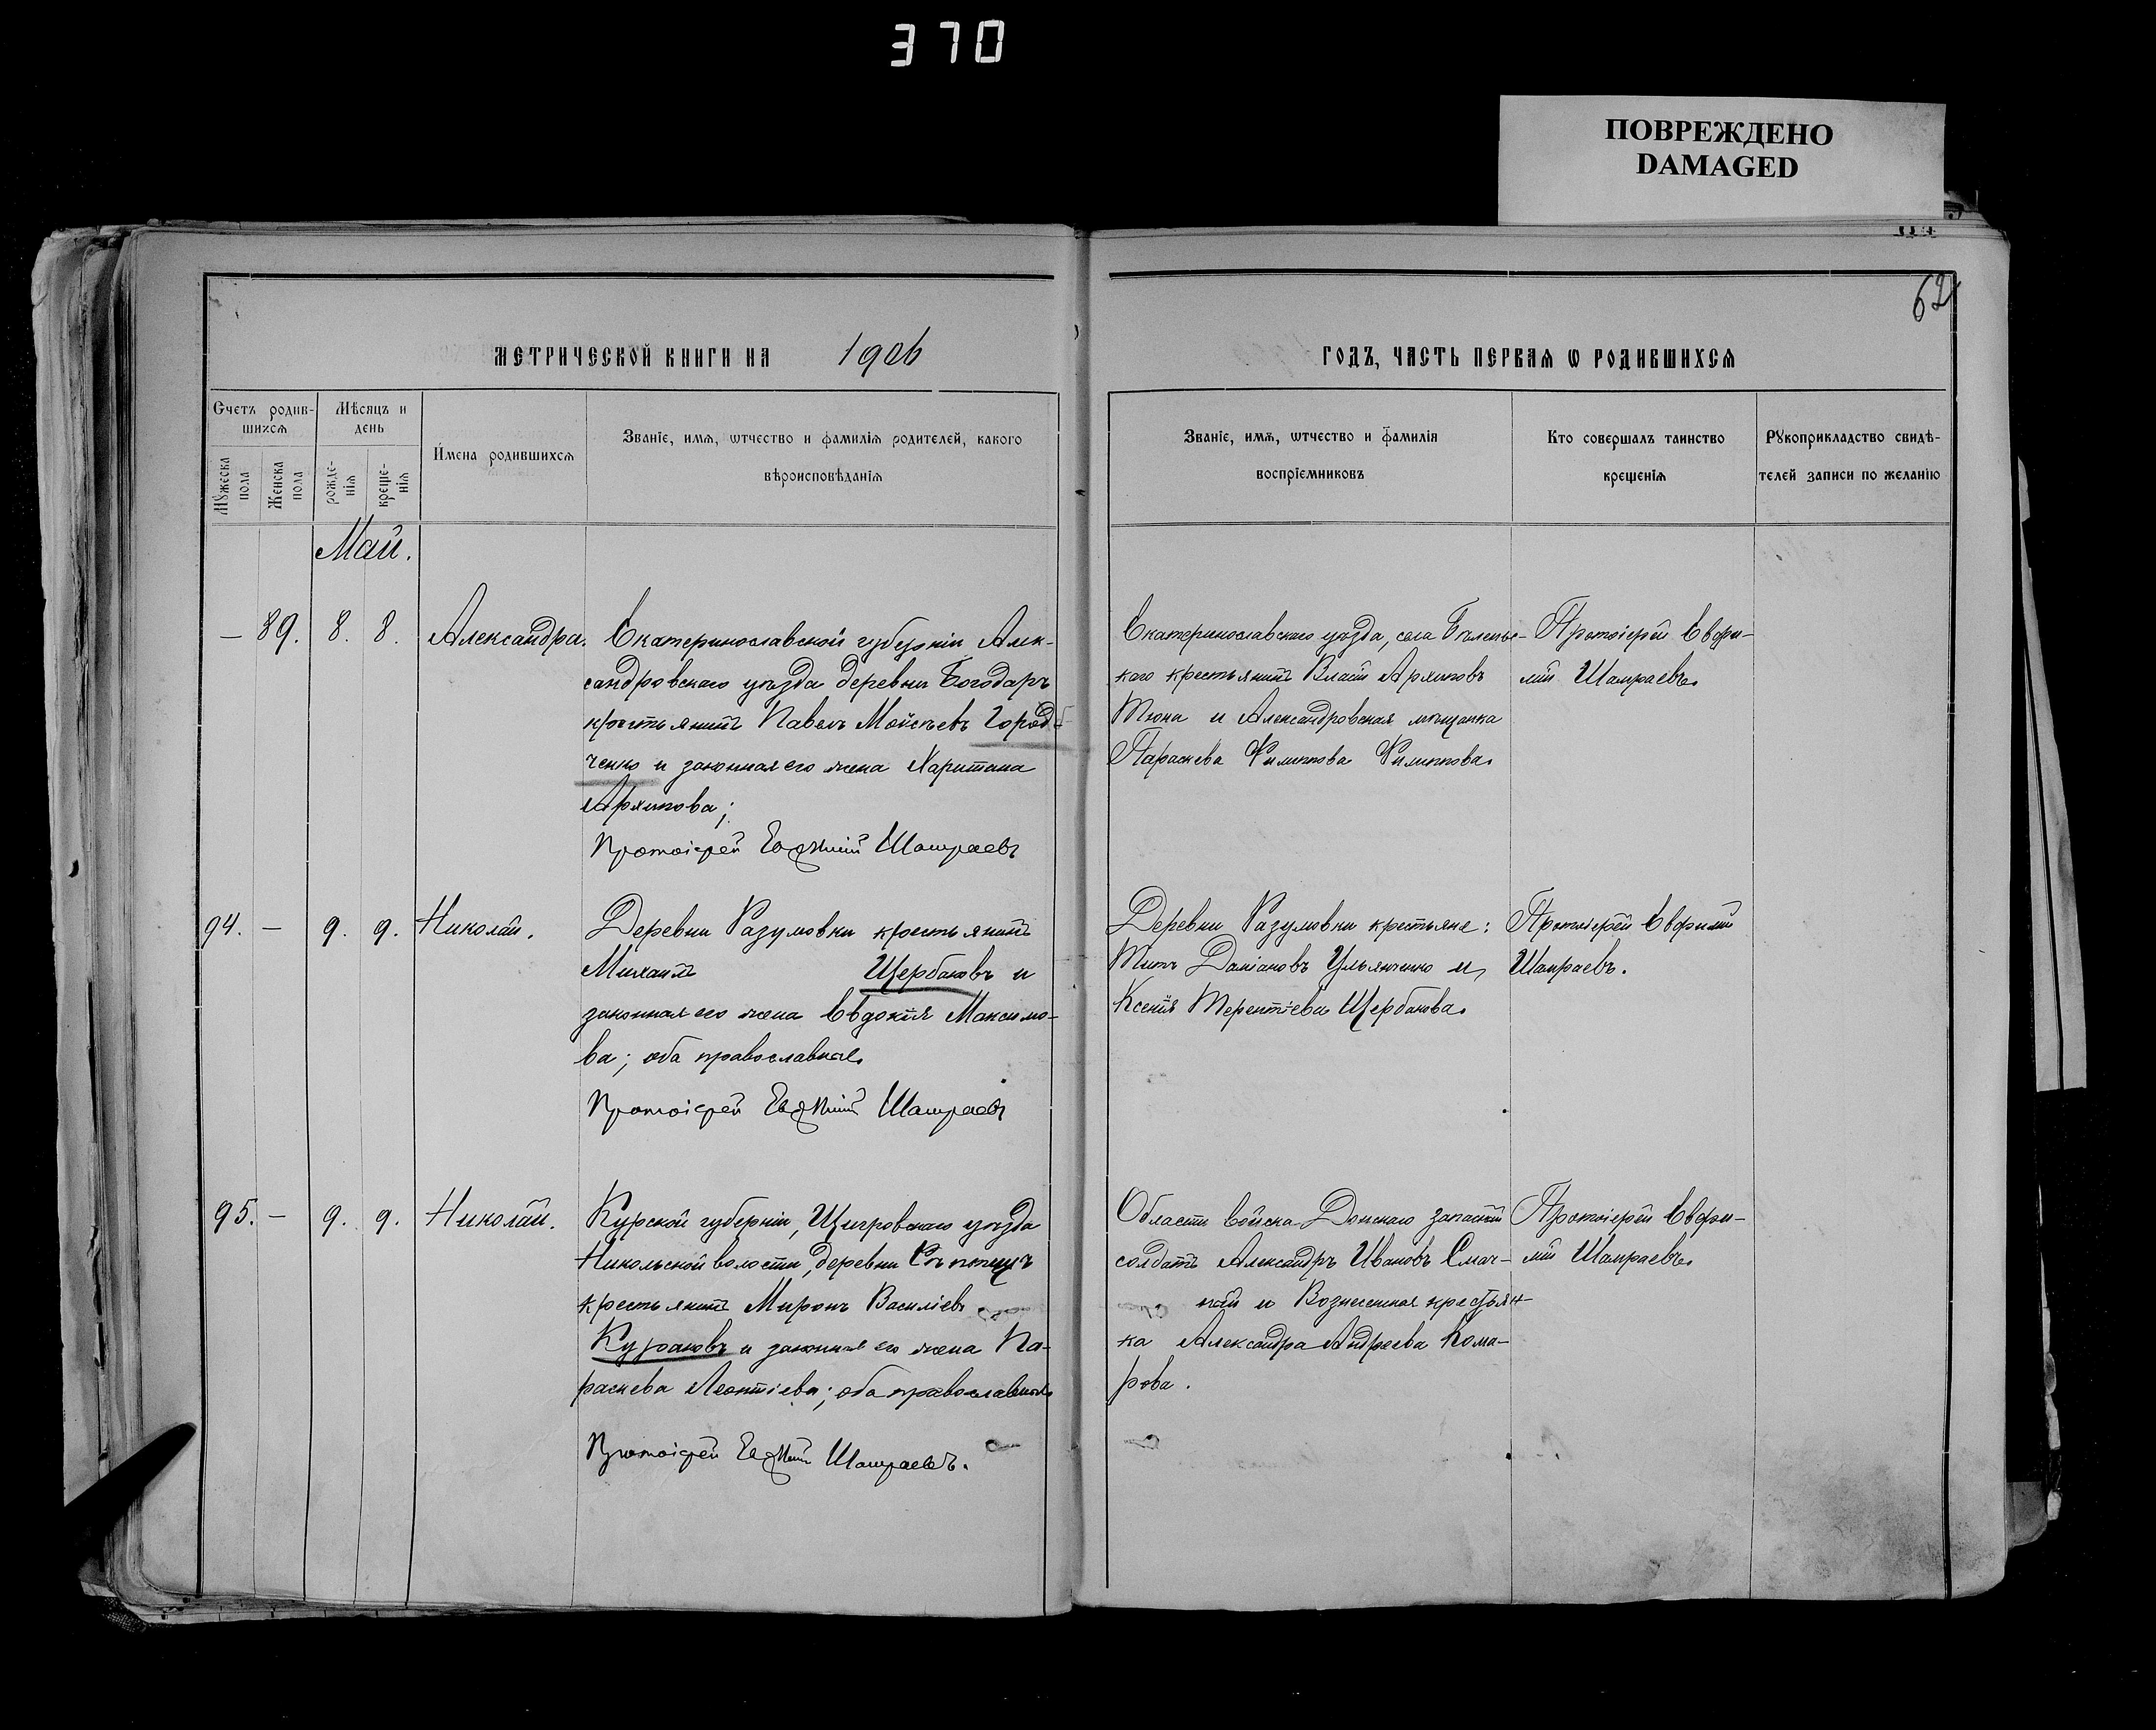 370
ПОВРЕЖДЕНО
DAMAGED
62
МЕТРИЧЕСКОЙ КНИГИ НА 1906
ГОДЪ, ЧАСТЬ ПЕРВАѦ Ѡ РОДИВШИХСѦ
Счетъ родив-
шихсѧ
Мѣсяцъ и
день
Имена родившихсѧ
Званїе, имѧ, ѡтчество и фамилїѧ родителей, какого
вѣроисповѣданїѧ
Мꙋжеска
пола
Женска
пола
рожде-
нїѧ
креще-
нїѧ
Званїе, имѧ, ѡтчество и фамилїѧ
воспрїемниковъ
Кто совершалъ таинство
крещенїѧ
Рꙋкоприкладство свидѣ-
телей записи по желанїю
Май.
— 89. 8. 8. Александра.
Екатеринославской губерніи Алек-
сандровскаго уѣзда деревни Богодаръ
крестьянинъ Павелъ Мойсѣевъ Город-
ченко и законная его жена Харитина
Архипова;
Протоіерей Евфимій Шамраевъ
Екатеринославскаго уѣзда, села Бѣлень-
каго крестьянинъ Власій Архиповъ
Тюна и Александровская мѣщанка
Параскева Филиппова Филиппова.
Протоіерей Евфи-
мій Шамраевъ.
94. — 9. 9. Николай.
Деревни Разумовки крестьянинъ
Михаилъ Щербаковъ и
законная его жена Евдокія Максимо-
ва; оба православные.
Протоіерей Евфимій Шамраевъ
Деревни Разумовки крестьяне:
Титъ Даміановъ Ульянченко и
Ксенія Терентіева Щербакова.
Протоіерей Евфимій
Шамраевъ.
95. — 9. 9. Николай.
Курской губерніи, Щигровскаго уѣзда
Никольской волости, деревни
крестьянинъ Миронъ Василіевъ
Кураковъ и законная его жена Па-
раскева Леонтіева; оба православные.
Протоіерей Евфимій Шамраевъ.
Области войска Донскаго запасный
солдатъ Александръ Ивановъ Смач-
ный и Вознесенская крестьян-
ка Александра Андреева Кома-
рова.
Протоіерей Евфи-
мій Шамраевъ.